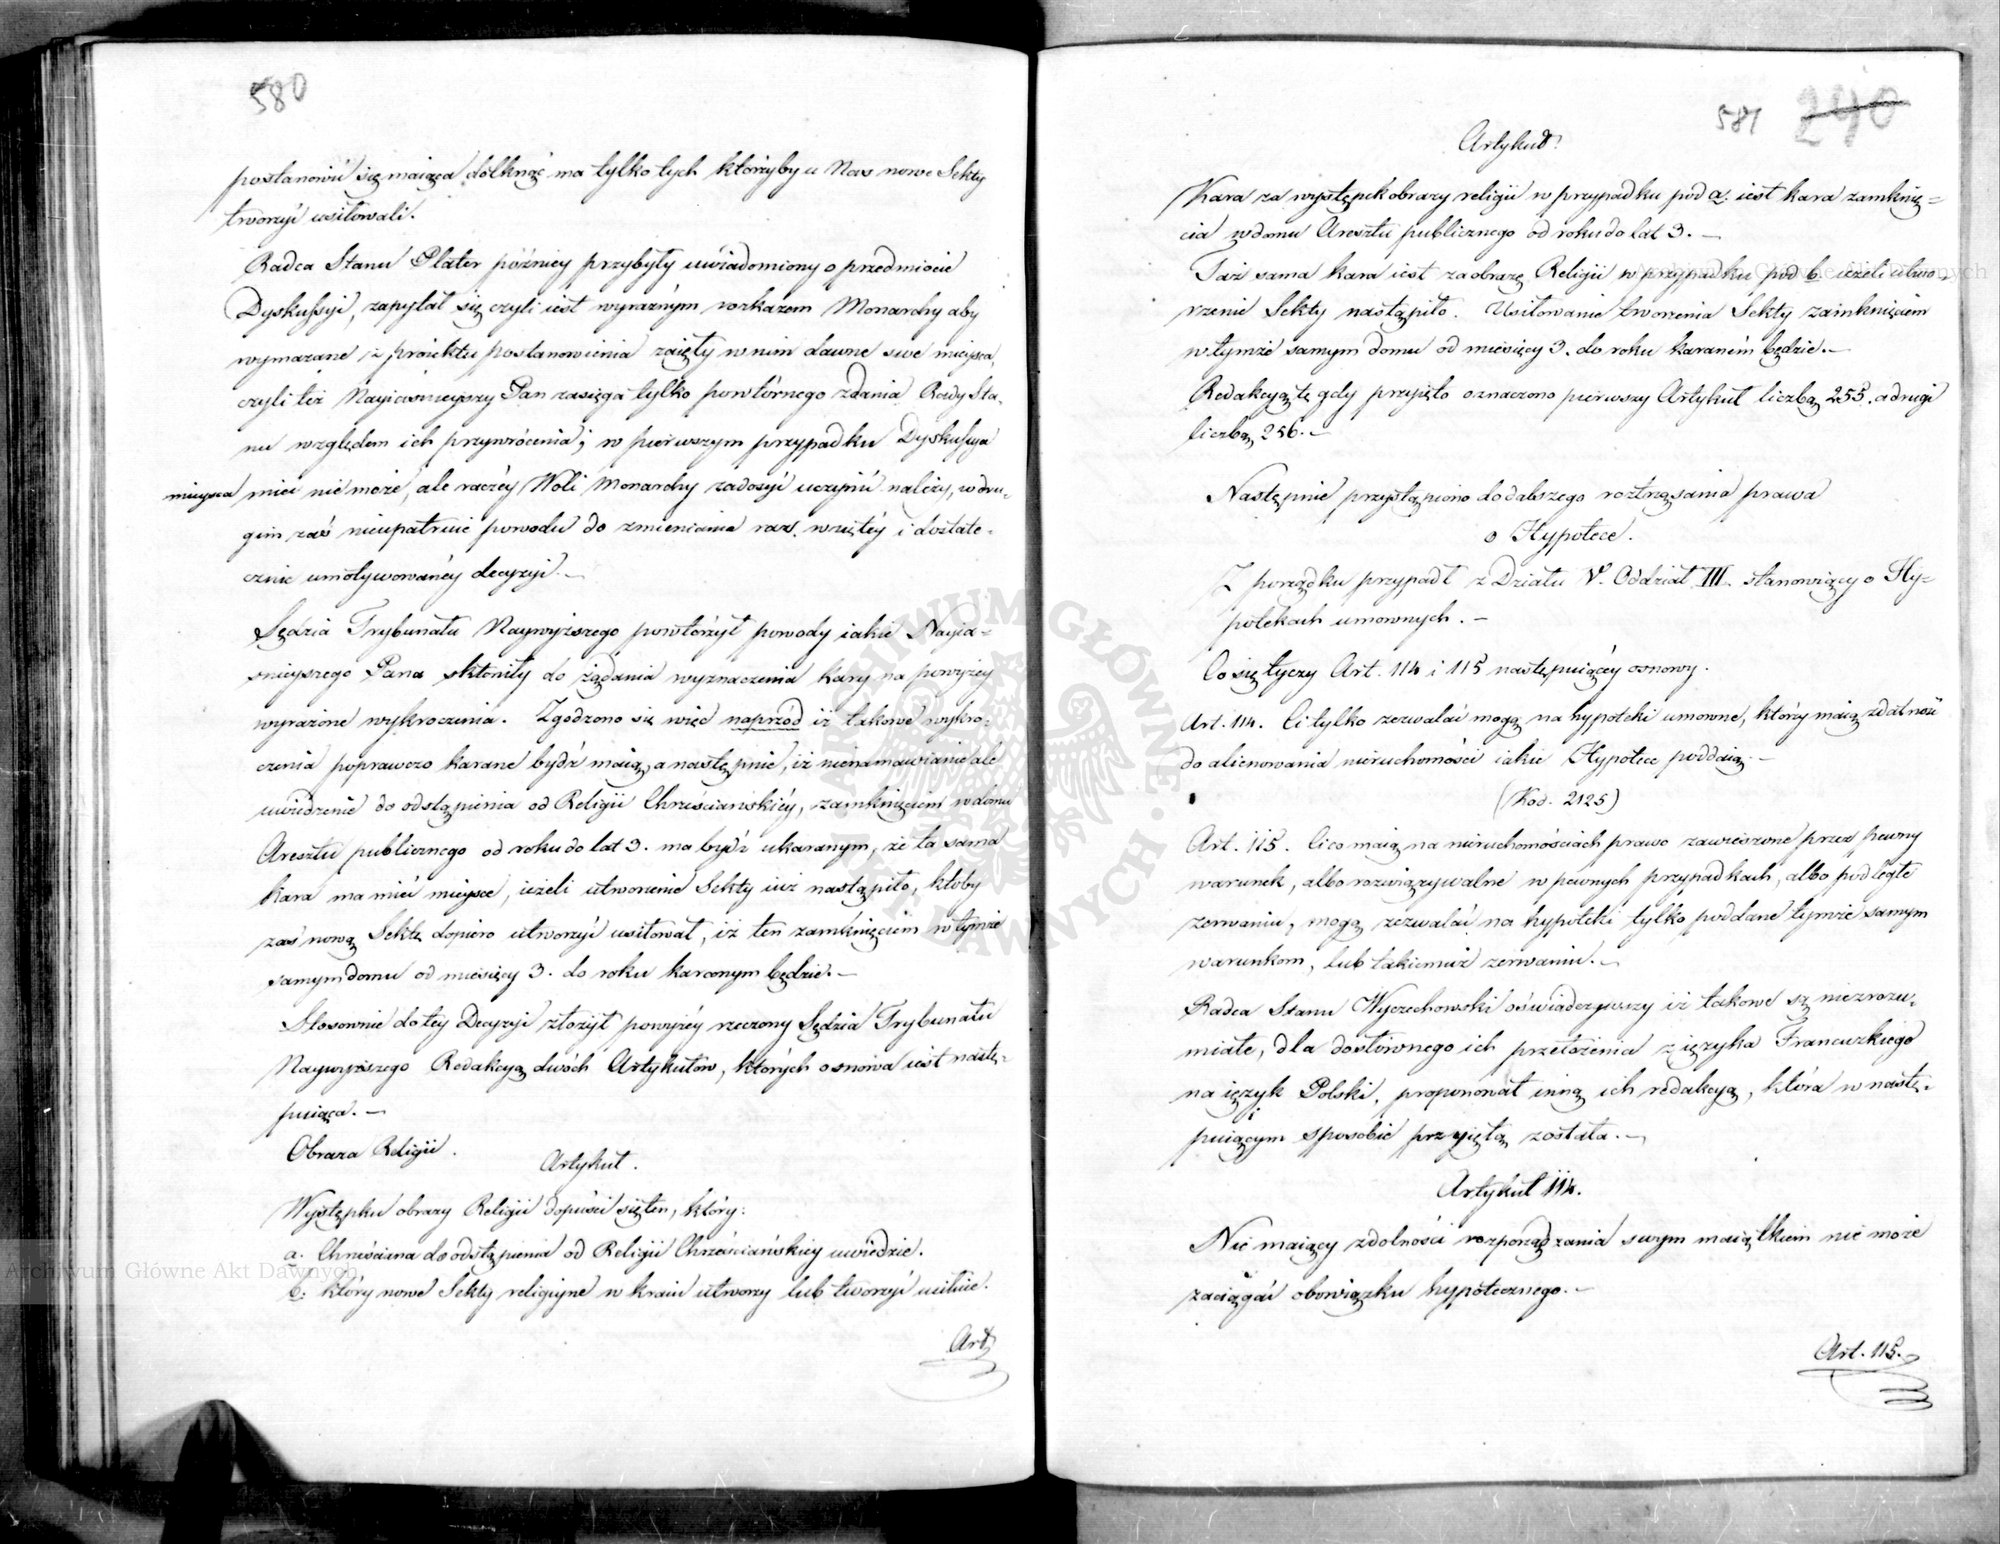 580
postanowić się maiąca dotknąć ma tylko tych którzyby u Nas nowe Sekty
tworzyć usiłowali.
Radca Stanu Plater później przybyły uwiadomiony o przedmiocie
Dyskussyi, zapytał się czyli iest wyraźnym rozkazem Monarchy aby
wymazane z proiektu postanowienia zaięły w nim dawne swe mieysca,
czyli też Nayiaśnieyszy Pan zasięga tylko powtórnego zdania Rady Sta-
nu względem ich przywrócenia; w pierwszym przypadku Dyskussya
mieysca mieć nie może, ale raczéy Woli Monarchy zadosyć uczynić należy, w dru-
gim zaś nieupatruie powodu do zmieniania raz wziętéy i dostate-
cznie umotywowanéy decyzyi.
Sędzia Trybunału Naywyższego powtórzył powody iakie Nayia-
śnieyszego Pana skłoniły do żądania wyznaczenia kary na powyżey
wyrażone wykroczenia. Zgodzono się więc naprzód iż takowe wykro-
czenia poprawczo karane bydź maią, a następnie, iż nienamawianie ale
uwiedzenie do odstąpienia od Religii Chrześciańskiéy, zamknięciem w domu
Aresztu publicznego od roku do lat 3. ma bydź ukaranym, że ta sama
kara ma mieć mieysce, ieżeli utworzenie Sekty iuż nastąpiło, ktoby
zaś nową Sektę dopiero utworzyć usiłował, iż ten zamknięciem w tymże
samym domu od miesięcy 3. do roku karconym będzie.
Stosownie do tey Decyzyi złożył powyżéy rzeczony Sędzia Trybunału
Naywyższego Redakcyą dwóch Artykułów, których osnowa iest nastę-
puiąca.
Obraza Religii.
Artykuł.
Występku obrazy Religii dopuści się ten, który:
a. Chrześcianina do odstąpienia od Religii Chrześciańskiey uwiedzie.
b. który nowe Sekty religiyne w kraiu utworzy lub tworzyć usiłuie.
Art
581 290
Artykuł
Kara za występek obrazy religii w przypadku pod a. iest kara zamknię-
cia w domu Aresztu publicznego od roku do lat 3.
Taż sama kara iest za obrazę Religii w przypadku pod b. ieżeli utwo-
rzenie Sekty nastąpiło. Usiłowanie tworzenia Sekty zamknięciem
w tymże samym domu od miesięcy 3. do roku karaném będzie.
Redakcyą tę gdy przyięto oznaczono pierwszy Artykuł liczbą 255. a drugi
liczbą 256.
Następnie przystąpiono do dalszego roztrząsania prawa
o Hypotece.
Z porządku przypadł z Działu V. Oddział III. stanowiący o Hy-
potekach umownych.
Co się tyczy Art. 114 i 115 następuiącéy osnowy.
Art. 114. Ci tylko zezwalać mogą na hypoteki umowne, którzy maią zdatność
do alienowania nieruchomości iakie Hypotece poddaią.
(Kod. 2125)
Art. 115. Ci co maią na nieruchomościach prawo zawieszone przez pewny
warunek, albo rozwiązywalne w pewnych przypadkach, albo podległe
zerwaniu, mogą zezwalać na hypoteki tylko poddane tymże samym
warunkom, lub takiemuż zerwaniu.
Radca Stanu Wyczechowski oświadczywszy iż takowe są niezrozu-
miałe, dla dosłownego ich przełożenia z ięzyka Francuzkiego
na ięzyk Polski, proponował inną ich redakcyą, która w nastę-
puiącym sposobie przyiętą została.
Artykuł 114.
Nie maiący zdolności rozporządzania swym maiątkiem nie może
zaciągać obowiązku hypotecznego.
Art. 115.
Archiwum Główne Akt Dawnych
Archiwum Główne Akt Dawnych
ARCHIWUM GŁÓWNE AKT DAWNYCH